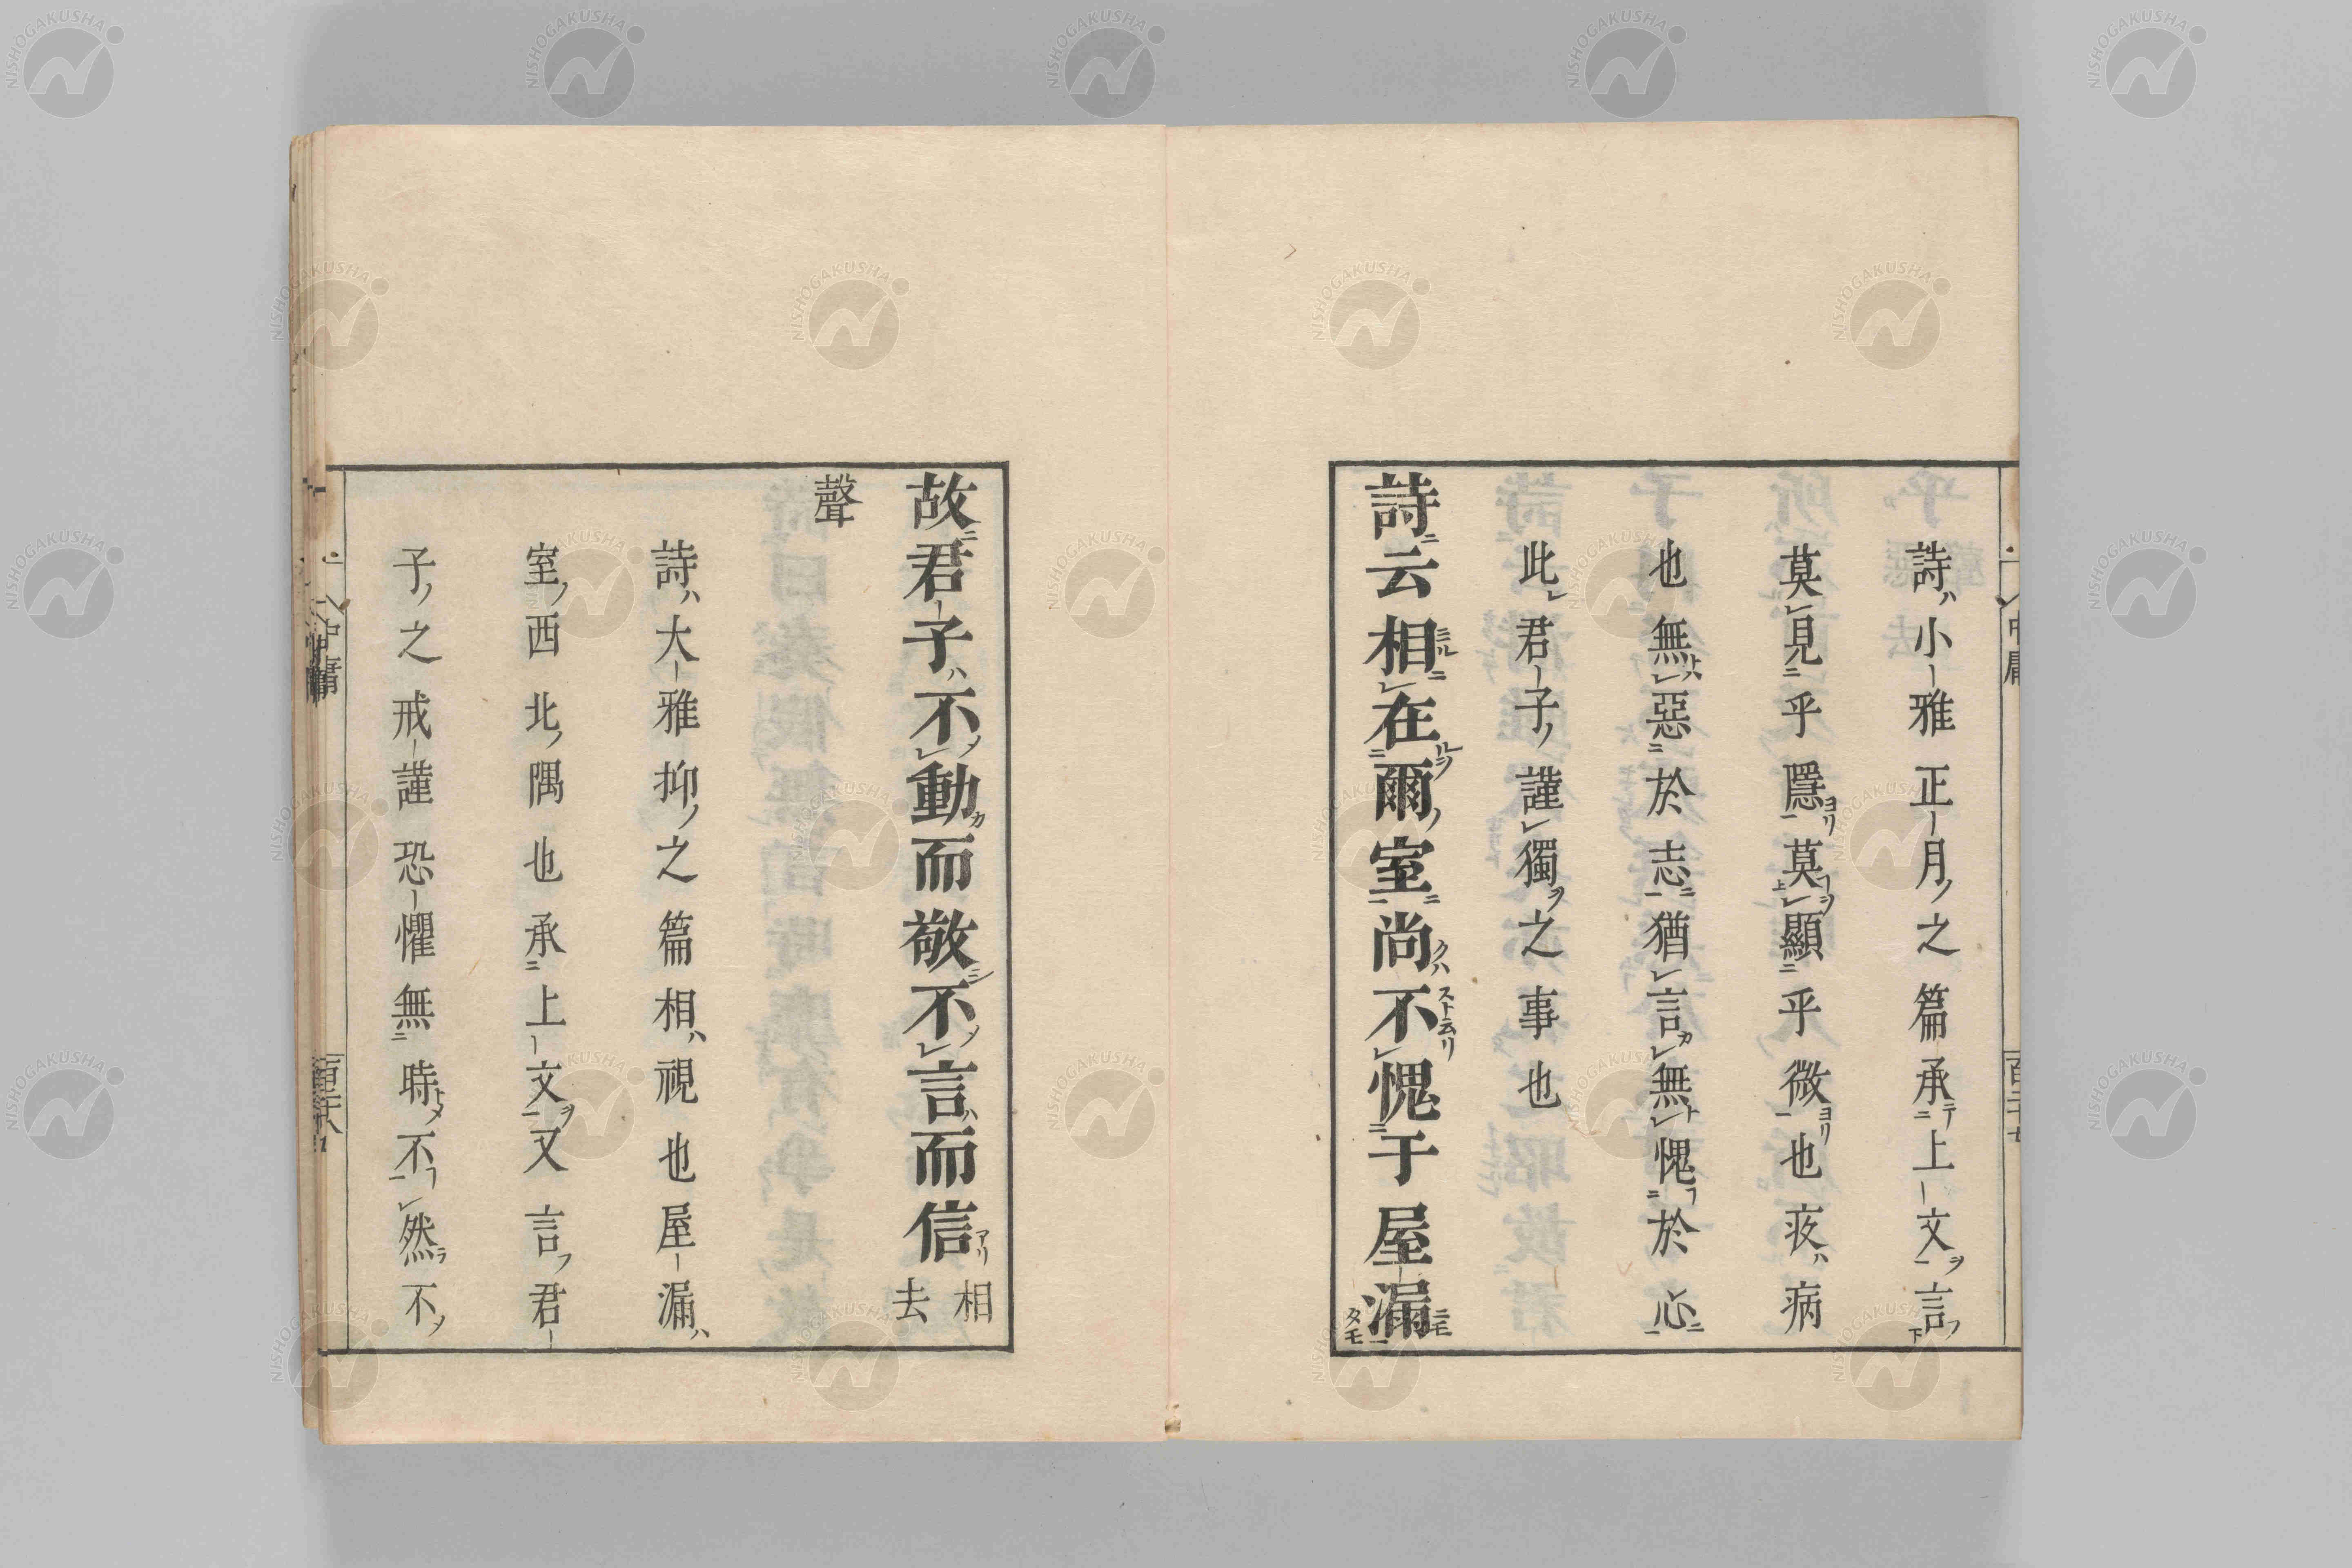 詩小雅正月之篇承上文言
莫見乎隱莫顯乎微也疚病
也無惡於志猶言無愧於心
此君子謹獨之事也
詩云相在爾室尚不愧于屋漏
故君子不動而敬不言而信相去
聲
詩大雅抑之篇相視也屋漏
室西北隅也承上文又言君
子之戒謹恐懼無時不然不
中庸
NISHOGAKUSHA